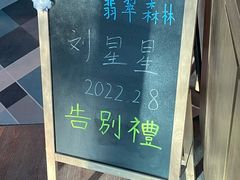 翡翠森林
刘星星
2022 2 8
告別禮